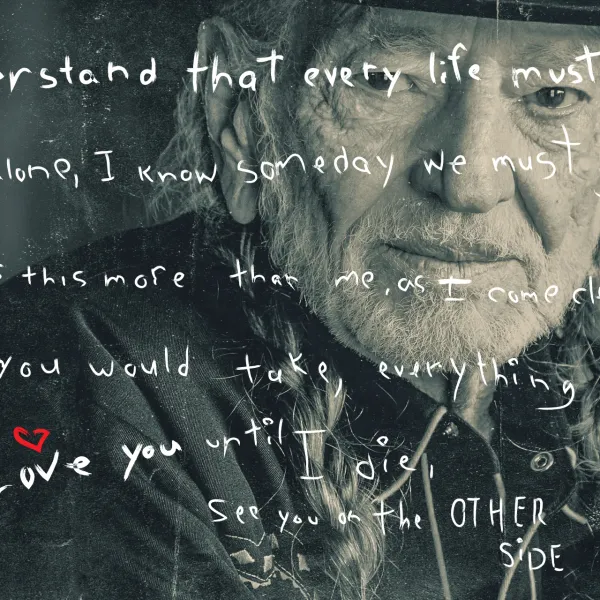 rstand that every life must
lone, I know someday we must
this more than me, as I come cl
you would take, everything
Love you until I die,
See you on the OTHER
SiDE